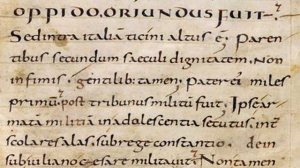 OPPIDO. ORIUNDUS FUIT.
Sed intra italiā ticini altus ē. Paren
tibus secundum saeculi dignitatem. Non
infimis. gentilib; tamen. Pater ei miles
primū. post tribunus militū fuit. Ipse ar
matā militiā in adolescentia secutus, int
scolares alas, sub rege constantio. dein
sub iuliano cesare militavit. Non tamen